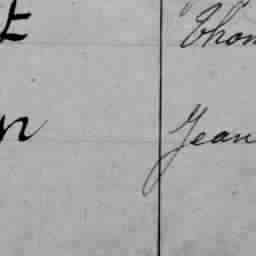 t Thom
n Jean